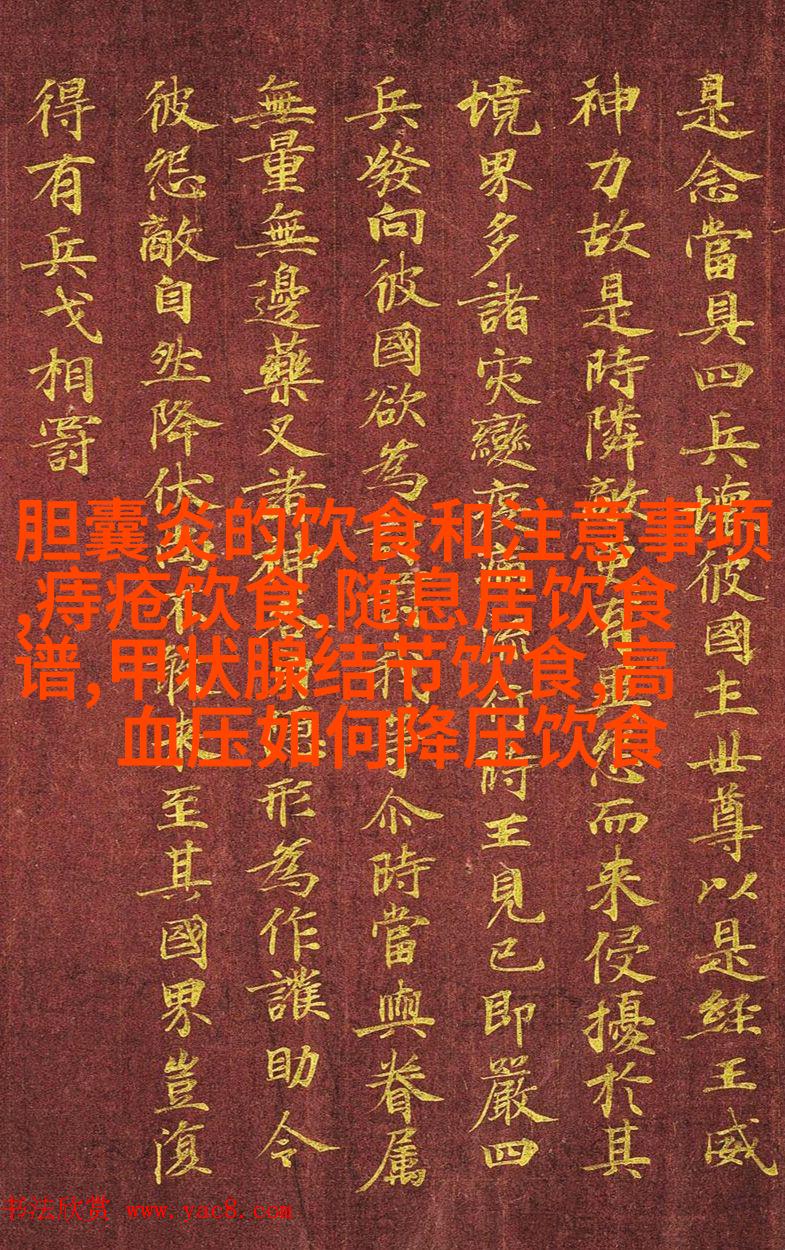 是念當具四兵壞彼國土世尊以是經王威
神力故是時隣敵更有異怨而來侵擾於其
境界多諸灾變疫病流行時王見已即嚴四
兵發向彼國欲為尒時當與眷属
無量無邊藥叉諸神各形為作護助令
彼怨敵自然降伏尚不來至其國界豈復
得有兵戈相罸
胆囊炎的饮食和注意事项
,痔疮饮食,随息居饮食
谱,甲状腺结节饮食,高
血压如何降压饮食
书法欣赏 www.yac8.com